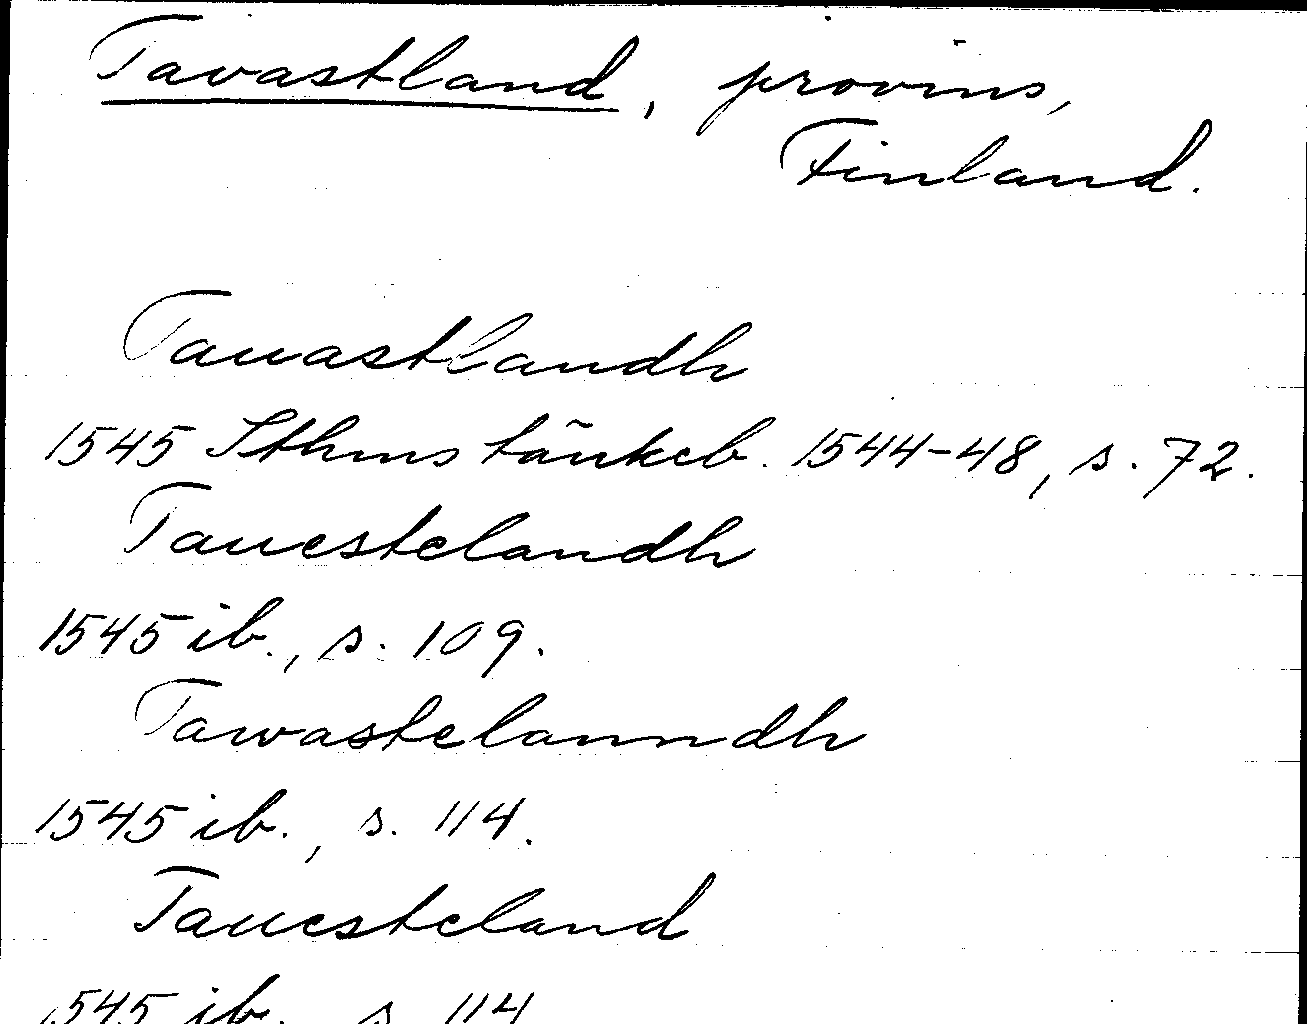 Tavastland, provins,
Finland.
Tauastlandh
1545 Sthms tänkeb. 1544-48, s. 72.
Tauestelandh
1545 ib., s. 109.
Tawastelanndh
1545 ib., s. 114.
Tauesteland
1545 ib. s. 114